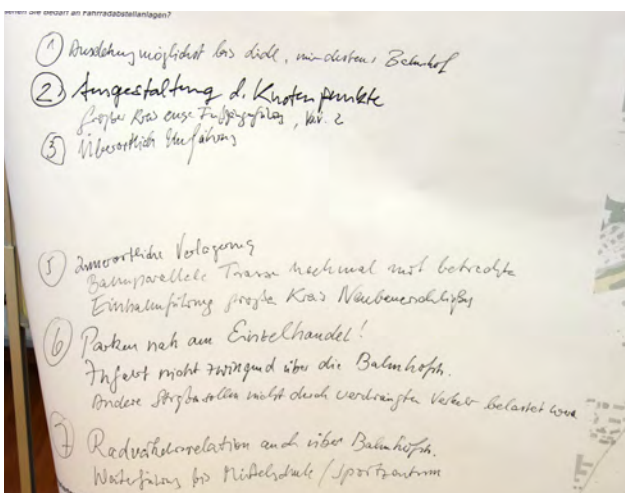 sehen Sie Bedarf an Fahrradabstellanlagen?
① Ausdehnung möglichst bis Lidl, mindestens Bahnhof
② Ausgestaltung d. Knotenpunkte
großer Kreis enge Fußgängerführung, Var. 2
③ Überörtlich Umfahrung
⑤ Innerörtliche Verlagerung
Bahnparallele Trasse nochmal mit betrachten
Einbahnführung großer Kreis
⑥ Parken nah am Einzelhandel!
Zufahrt nicht zwingend über die Bahnhofstr.
Andere Straßen sollen nicht durch verdrängten Verkehr belastet werden
⑦ auch über Bahnhofstr.
Weiterführung bis Mittelschule / Sportzentrum